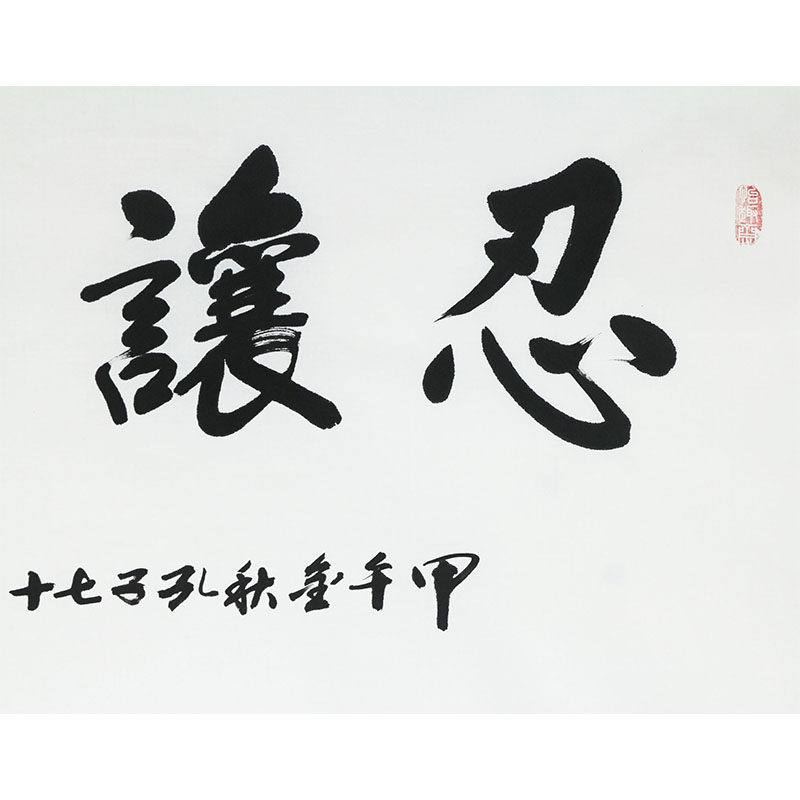 忍讓
甲午金秋孔子七十